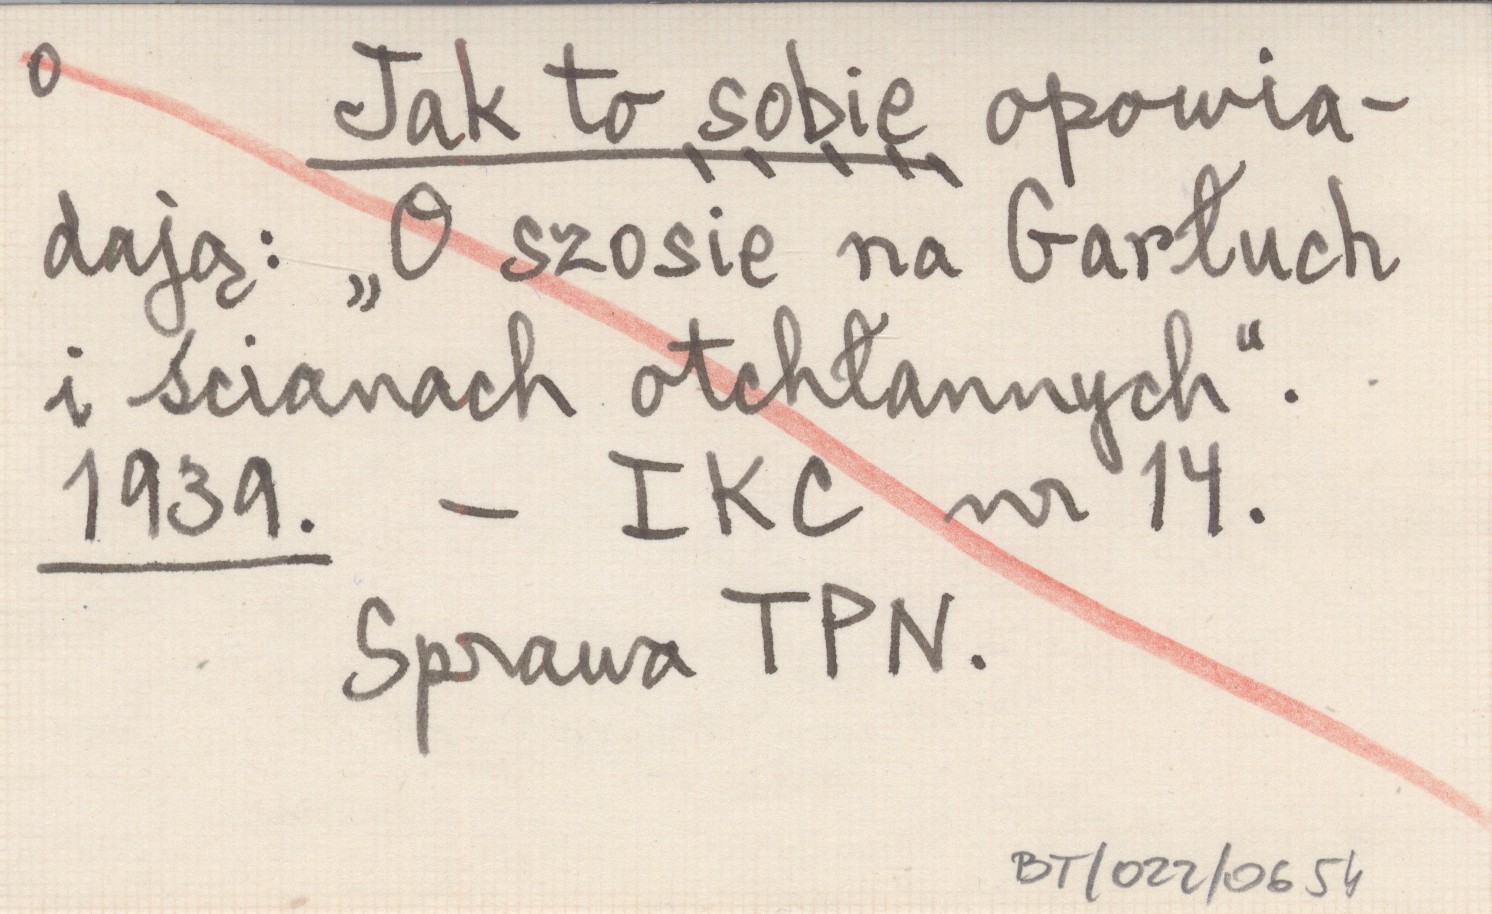 0 Jak to sobie opowia-
dają: „O szosie na Garłuch
i ścianach otchłannych“.
1939. – IKC nr 14.
Sprawa TPN.
BT/022/0654